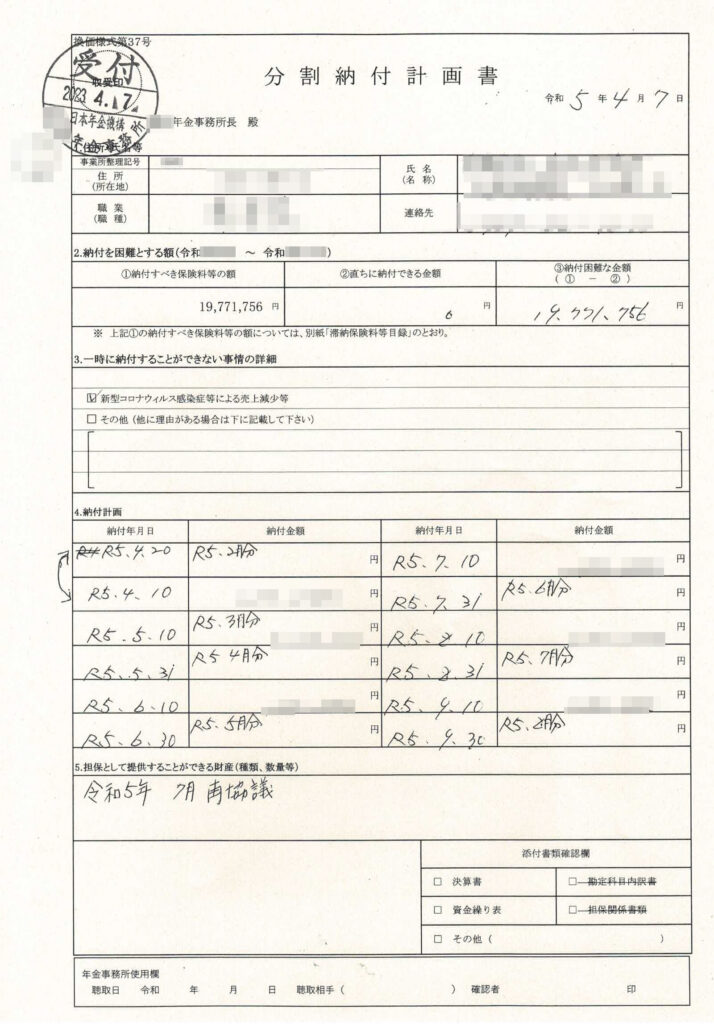 換価様式第37号
受付
収受印
2023 4. 17
日本年金機構
年金事務所
分割納付計画書
令和 5 年 4 月 7 日
年金事務所長 殿
1.住所・氏名等
事業所整理記号
住所
(所在地)
氏名
(名称)
職業
(職種)
連絡先
2.納付を困難とする額(令和 ～ 令和 )
①納付すべき保険料等の額
②直ちに納付できる金額
③納付困難な金額
( ① － ② )
19,771,756 円
0 円
19,771,756 円
※ 上記①の納付すべき保険料等の額については、別紙「滞納保険料等目録」のとおり。
3.一時に納付することができない事情の詳細
☑ 新型コロナウィルス感染症等による売上減少等
□ その他 (他に理由がある場合は下に記載して下さい)
4.納付計画
納付年月日 納付金額 納付年月日 納付金額
R5.4.20 R5.2月分 円 R5.7.10 円
R5.4.10 円 R5.7.31 R5.6月分 円
R5.5.10 R5.3月分 円 R5.8.10 円
R5.5.31 R5 4月分 円 R5.8.31 R5.7月分 円
R5.6.10 円 R5.9.10 円
R5.6.30 R5.5月分 円 R5.9.30 R5.8月分 円
5.担保として提供することができる財産(種類、数量等)
令和5年 7月 再協議
添付書類確認欄
□ 決算書 □ 勘定科目内訳書
□ 資金繰り表 □ 担保関係書類
□ その他 ( )
年金事務所使用欄
聴取日 令和 年 月 日 聴取相手 ( ) 確認者 印